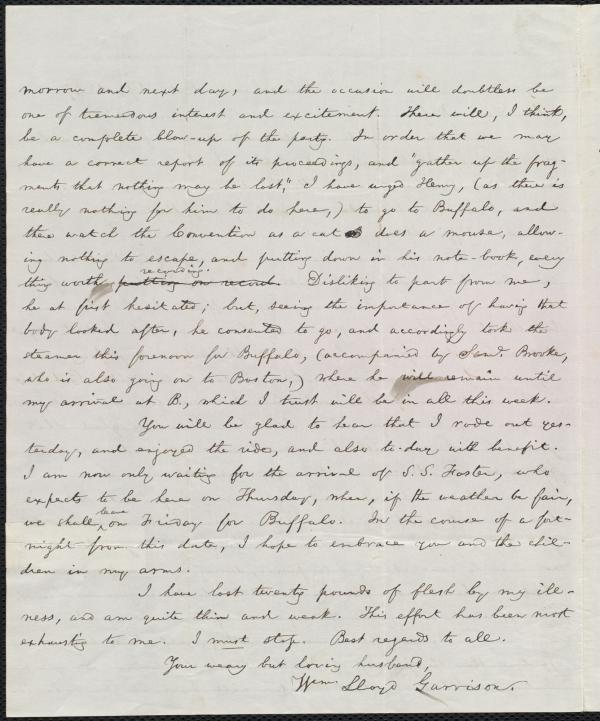 morrow and next day, and the occasion will doubtless be
one of tremendous interest and excitement. There will, I think,
be a complete blow-up of the party. In order that we may
have a correct report of its proceedings, and "gather up the frag-
ments that nothing may be lost," I have urged Henry, (as there is
really nothing for him to do here,) to go to Buffalo, and
there watch the Convention as a cat does a mouse, allow-
ing nothing to escape, and putting down in his note-book, every
recording.
thing worth putting on record. Disliking to part from me,
he at first hesitated; but, seeing the importance of having that
body looked after, he consented to go, and accordingly took the
steamer this forenoon for Buffalo, (accompanied by Saml. Brooke,
who is also going on to Boston,) where he will remain until
my arrival at B., which I trust will be in all this week.
You will be glad to hear that I rode out yes-
terday, and enjoyed the ride, and also to-day with benefit.
I am now only waiting for the arrival of S. S. Foster, who
expects to be here on Thursday, when, if the weather be fair,
leave
we shall on Friday for Buffalo. In the course of a fort-
night from this date, I hope to embrace you and the chil-
dren in my arms.
I have lost twenty pounds of flesh by my ill-
ness, and am quite thin and weak. This effort has been most
exhausting to me. I must stop. Best regards to all.
Your weary but loving husband,
Wm. Lloyd Garrison.